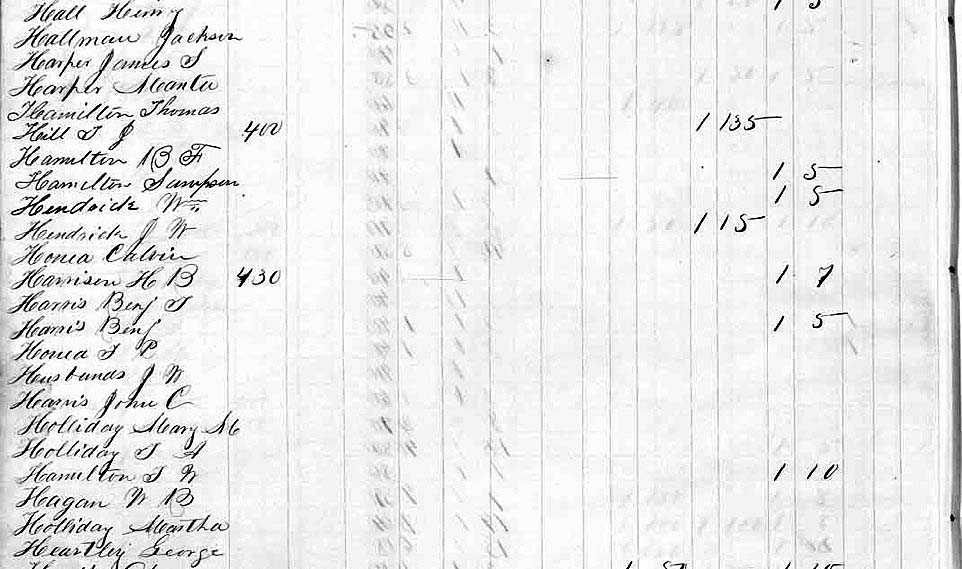 Hall Henry 1 5
Hallman Jackson
Harper James S
Harper Manta
Hamilton Thomas
Hill T J 400 1 135
Hamilton B F
Hamilton Sampson 1 5
Hendrick Wm 1 5
Hendrick J W 1 15
Honea Calvin
Harrison H B 430 1 7
Harris Benj T
Harris Benj 1 5
Honea T P
Husbands J W
Harris John C
Holliday Mary M
Holliday T A
Hamilton T W 1 10
Hagan W B
Holliday Martha
Heartley George